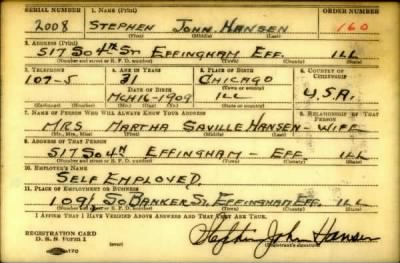 SERIAL NUMBER 1. NAME (Print) ORDER NUMBER
2008 STEPHEN JOHN HANSEN 160
(First) (Middle) (Last)
2. ADDRESS (Print)
517 SO 4TH ST. EFFINGHAM EFF. ILL
(Number and street or R. F. D. number) (Town) (County) (State)
3. TELEPHONE 4. AGE IN YEARS 5. PLACE OF BIRTH 6. COUNTRY OF CITIZENSHIP
107-S 31 CHICAGO
DATE OF BIRTH (Town or county)
MCH 16-1909 ILL U.S.A.
(Mo.) (Day) (Yr.) (State or country)
7. NAME OF PERSON WHO WILL ALWAYS KNOW YOUR ADDRESS 8. RELATIONSHIP OF THAT PERSON
MRS MARTHA SAVILLE HANSEN - WIFE
(Mr., Mrs., Miss) (First) (Middle) (Last)
9. ADDRESS OF THAT PERSON
517 SO 4TH EFFINGHAM - EFF. ILL
(Number and street or R. F. D. number) (Town) (County) (State)
10. EMPLOYER'S NAME
SELF EMPLOYED
11. PLACE OF EMPLOYMENT OR BUSINESS
109½ SO BANKER ST. EFFINGHAM EFF. ILL
(Number and street or R. F. D. number) (Town) (County) (State)
I AFFIRM THAT I HAVE VERIFIED ABOVE ANSWERS AND THAT THEY ARE TRUE.
REGISTRATION CARD
D. S. S. Form 1
Stephen John Hansen
(Registrant's signature)